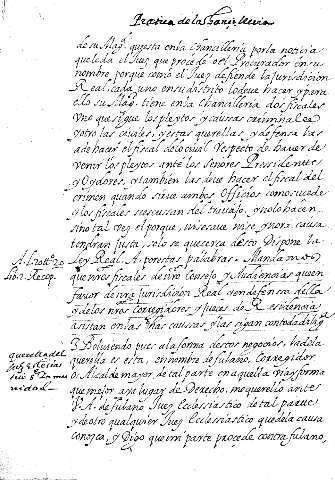 Practica de la Chancilleria
de su Magᵈ. questa en la Chancilleria por la noticia
que le da el Juez que procede o el Procurador en su
nombre, porque como el Juez defiende la Jurisdicion
Real, cada uno en su distrito lo que hacer, y pera
ello su Magᵈ. tiene en la Chancilleria dos fiscales
Uno que sigue los pleytos, y causas criminales
y otro las civiles, y estas querellas, y defensa las
ade hacer el fiscal de lo civil respecto de haver de
venir los pleytos ante los Señores Presidente
y Oydores, y tambien las deve hacer el fiscal del
crimen quando sirve ambos Officios como sucede
y los fiscales se escusan del travajo, y no lo hacen,
sino tal vez el por que, unas veces no se ignora causa
tendran justa, solo se que cerca desto Dispone la
Ley Real. A. por estas palabras. Manda mos
que nros fiscales de nro Consejo, y Audiencias que en
favor de nra Jurisdicion Real y en defensa della
y de los nros corregidores y Jueces de Residencia
asistan en las dhas causas, y las sigan con toda dilixᵃ
A. l. 20
lib. 2. Recop.
3. Bolviendo pues a la forma destos negocios, hasta
querella es esta, en nombre de fulano, Corregidor
o Alcalde mayor de tal parte en aquella via y forma
que mejor aya lugar de Derecho, me querello ante
V. A. de fulano Juez Ecclesiastico de tal parte
y de otro qualquier Juez Ecclesiastico que de la causa
conozca, y Digo que mi parte procede contra fulano,
querella del
Juez